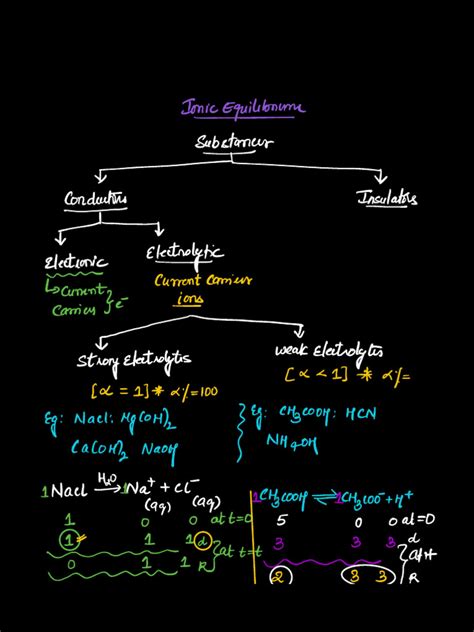 Ionic Equilibrium
Substances
Conductors
Insulators
Electronic
Electrolytic
Current
Carrier } e⁻
Current Carrier
ions
Strong Electrolytes
weak Electrolytes
[α = 1] * α% = 100
[α < 1] * α% =
Eg: Nacl: Mg(OH)₂
Ca(OH)₂ NaOH
Eg: CH₃COOH: HCN
NH₄OH
1 Nacl H₂O → 1 Na⁺ + Cl⁻
(aq) (aq)
1 0 0 at t=0
1 1 1 α } at t=t
0 1 1 R
1 CH₃COOH ⇌ 1 CH₃COO⁻ + H⁺
5 0 0 at=0
3 3 3 α
2 3 3 R